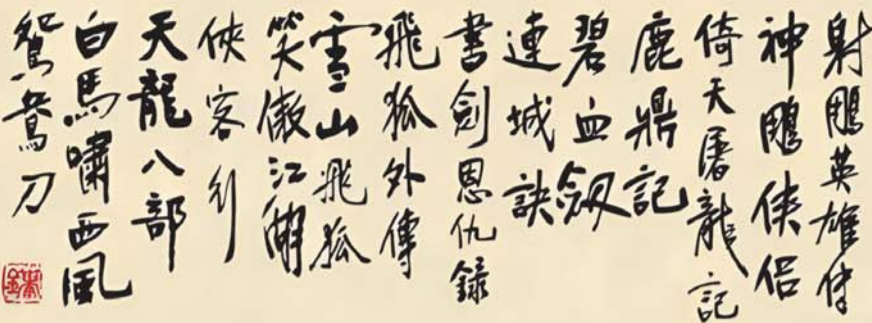 射鵰英雄傳
神鵰俠侶
倚天屠龍記
鹿鼎記
碧血劍
連城訣
書劍恩仇録
飛狐外傳
雪山飛狐
笑傲江湖
俠客行
天龍八部
白馬嘯西風
鴛鴦刀